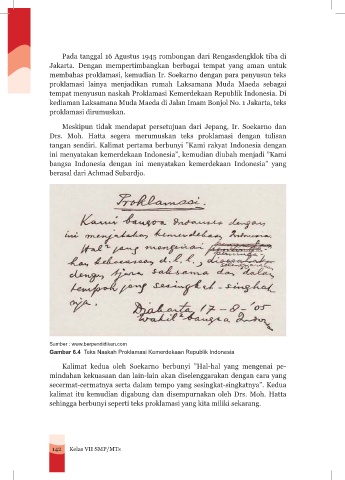 Pada tanggal 16 Agustus 1945 rombongan dari Rengasdengklok tiba di
Jakarta. Dengan mempertimbangkan berbagai tempat yang aman untuk
membahas proklamasi, kemudian Ir. Soekarno dengan para penyusun teks
proklamasi lainya menjadikan rumah Laksamana Muda Maeda sebagai
tempat menyusun naskah Proklamasi Kemerdekaan Republik Indonesia. Di
kediaman Laksamana Muda Maeda di Jalan Imam Bonjol No. 1 Jakarta, teks
proklamasi dirumuskan.
Meskipun tidak mendapat persetujuan dari Jepang, Ir. Soekarno dan
Drs. Moh. Hatta segera merumuskan teks proklamasi dengan tulisan
tangan sendiri. Kalimat pertama berbunyi "Kami rakyat Indonesia dengan
ini menyatakan kemerdekaan Indonesia", kemudian diubah menjadi "Kami
bangsa Indonesia dengan ini menyatakan kemerdekaan Indonesia" yang
berasal dari Achmad Subardjo.
Proklamasi.
Kami bangsa Indonesia dengan
ini menjatakan kemerdekaan Indonesia.
Hal² jang mengenai
kekoeasaan d.l.l.,
dengan tjara saksama dan dalam
tempoh jang sesingkat-singkat
nja.
Djakarta 17-8-'05
Wakil² bangsa Indon
Sumber : www.berpendidikan.com
Gambar 6.4 Teks Naskah Proklamasi Kemerdekaan Republik Indonesia
Kalimat kedua oleh Soekarno berbunyi "Hal-hal yang mengenai pe-
mindahan kekuasaan dan lain-lain akan diselenggarakan dengan cara yang
secermat-cermatnya serta dalam tempo yang sesingkat-singkatnya". Kedua
kalimat itu kemudian digabung dan disempurnakan oleh Drs. Moh. Hatta
sehingga berbunyi seperti teks proklamasi yang kita miliki sekarang.
142 Kelas VII SMP/MTs